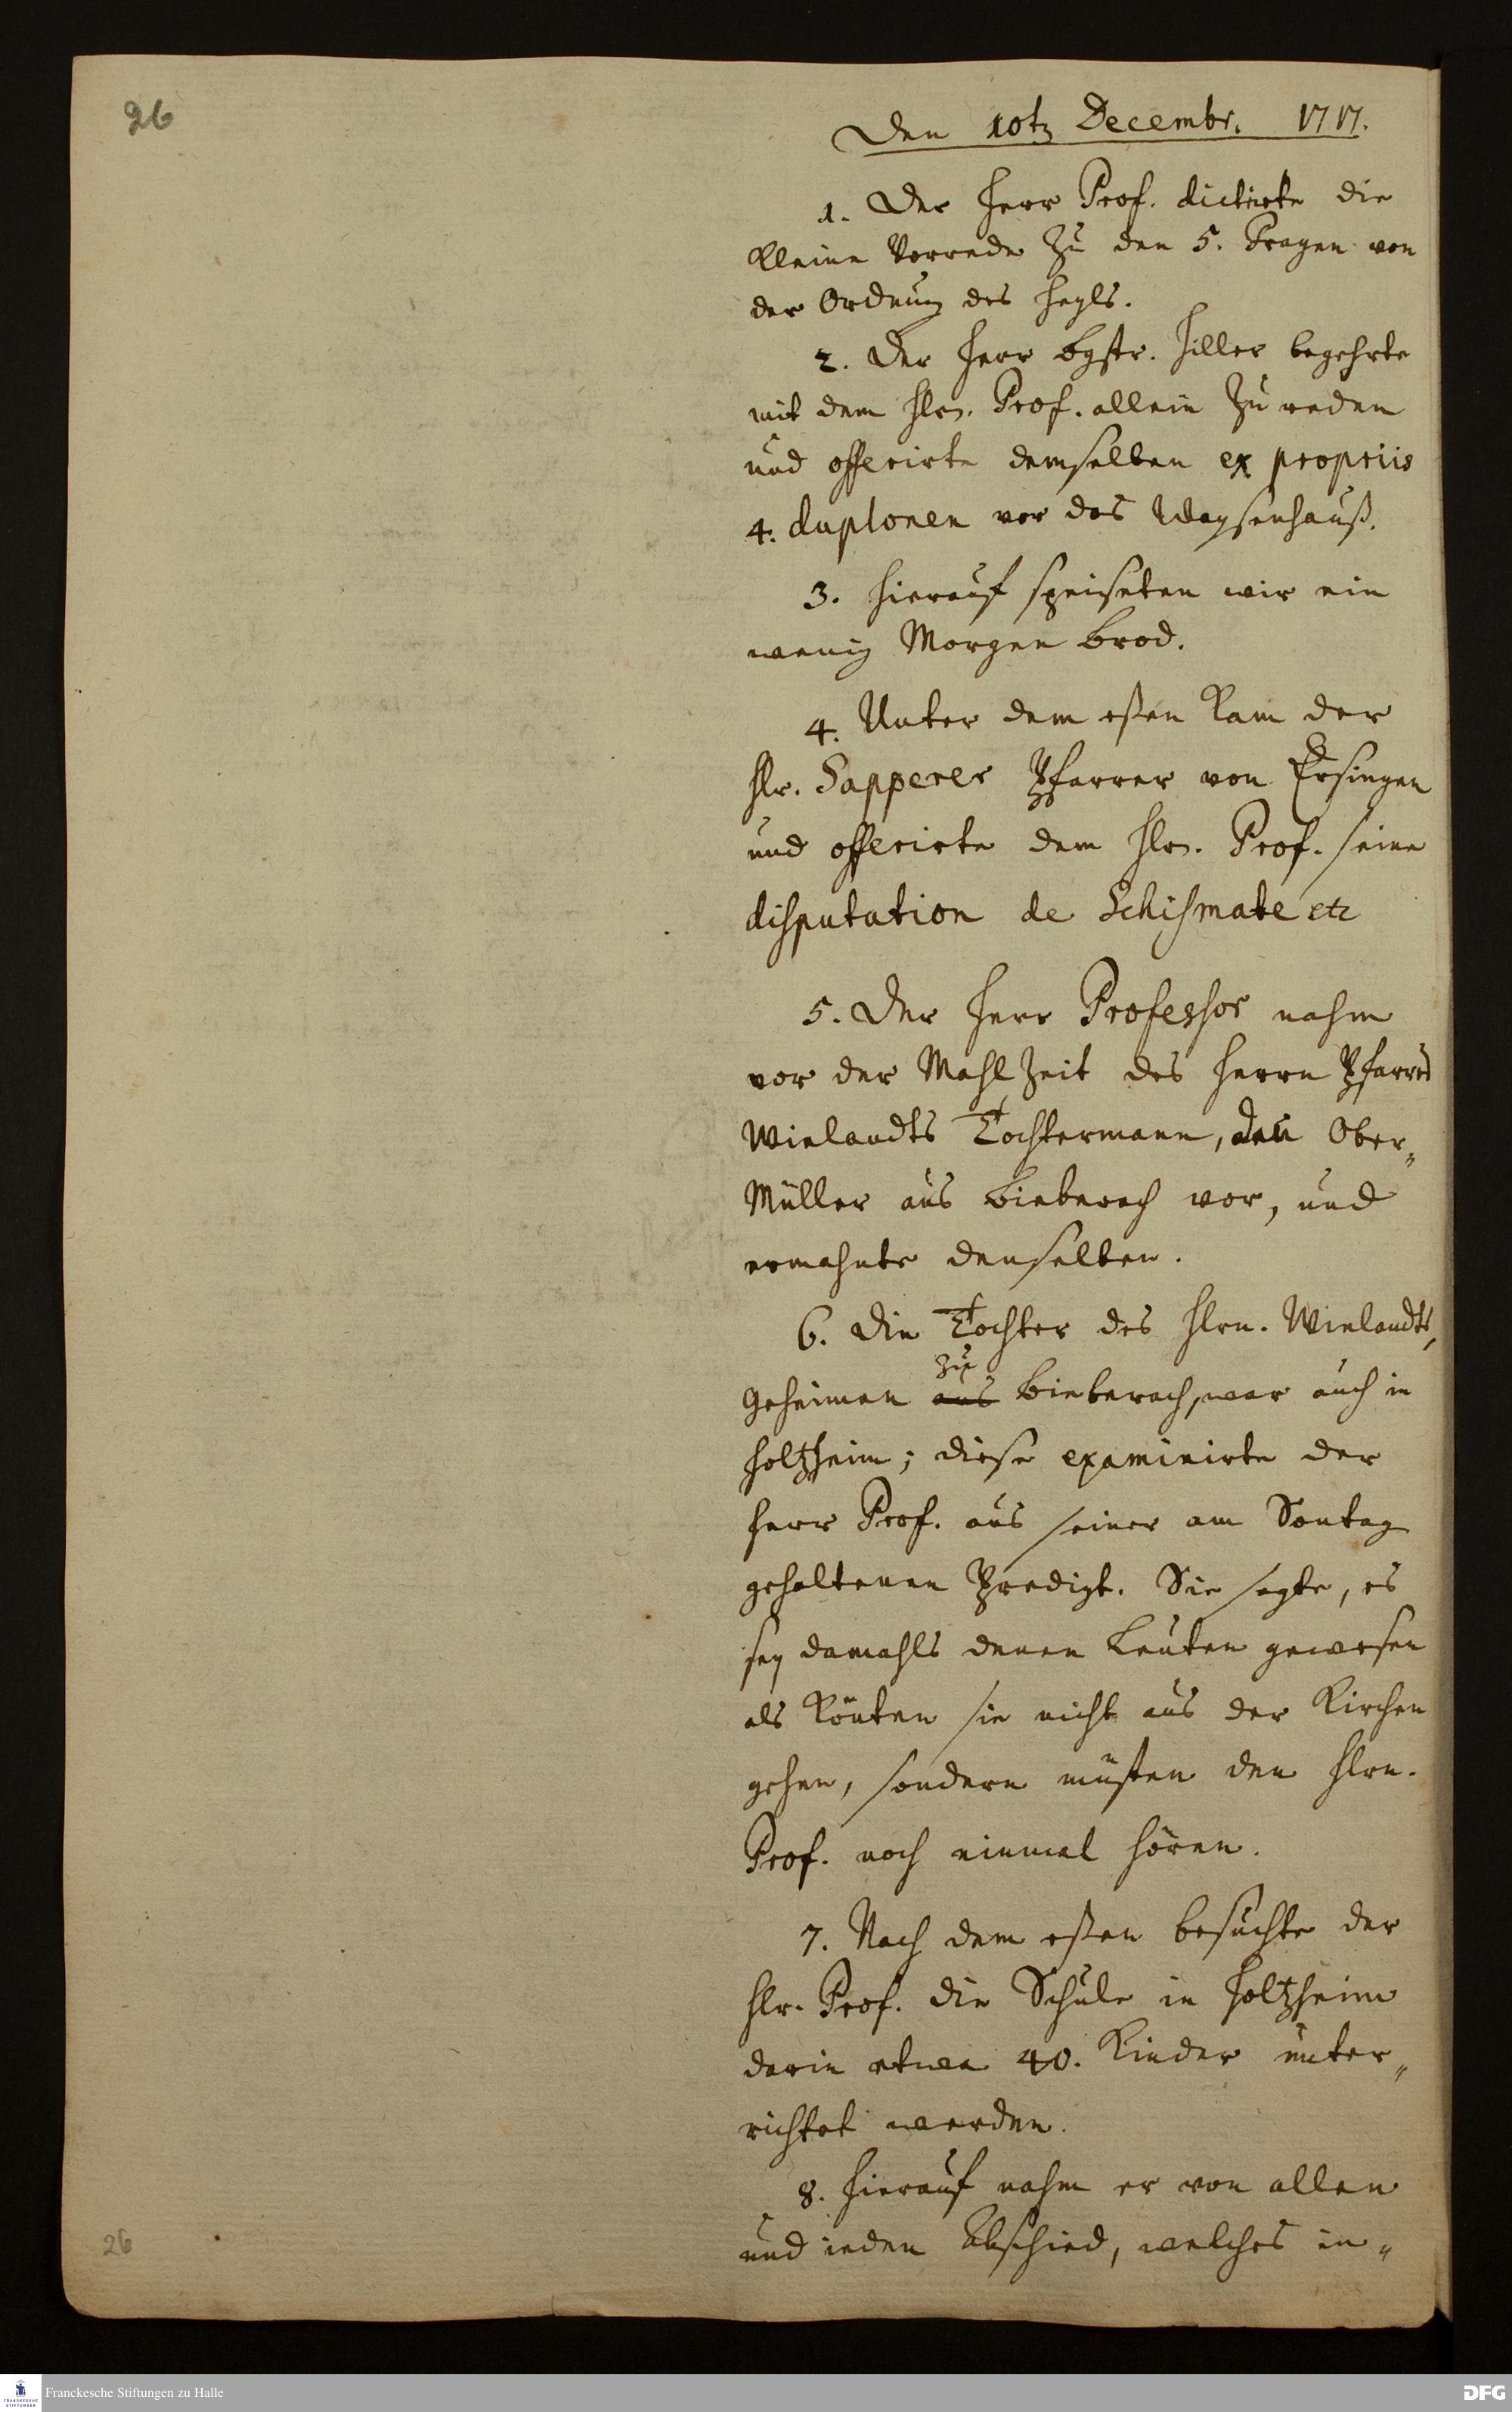 26
Den 10t. Decembr. 1717.
1. Der Herr Prof. dictirte die
kleine Vorrede zu den 5. Fragen von
der Ordnung des Heyls.
2. Der Herr Bgstr. Hiller begehrte
mit dem Hrn. Prof. allein zu reden
und offerirte demselben ex propriis
4. duplonen vor das Waysenhauß.
3. Hierauf speiseten wir ein
wenig Morgen Brod.
4. Unter dem eßen kam der
Hr. Sapperer Pfarrer von Ersingen
und offerirte dem Hrn. Prof. seine
disputation de Schismate etc
5. Der Herr Professor nahm
vor der Mahlzeit des Herrn Pfarrers
Wielandts Tochtermann, den Ober-
Müller aus Bieberach vor, und
ermahnte denselben.
6. Die Tochter des Hrn. Wielandts,
zu
Geheimen aus Bieberach, war auch in
Holtzheim; diese examinirte der
Herr Prof. aus seiner am Sontag
gehaltenen Predigt. Sie sagte, es
sey damahls denen Leuten gewesen
als könten sie nicht aus der Kirchen
gehen, sondern müsten den Hrn.
Prof. noch einmal hören.
7. Nach dem eßen besuchte der
Hr. Prof. die Schule in Holtzheim
darin etwa 40. Kinder unter-
richtet werden.
8. Hierauf nahm er von allen
und ieden Abschied, welches in-
26
Franckesche Stiftungen zu Halle
DFG